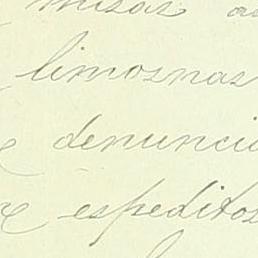 misas
limosnas
denuncia
espeditos